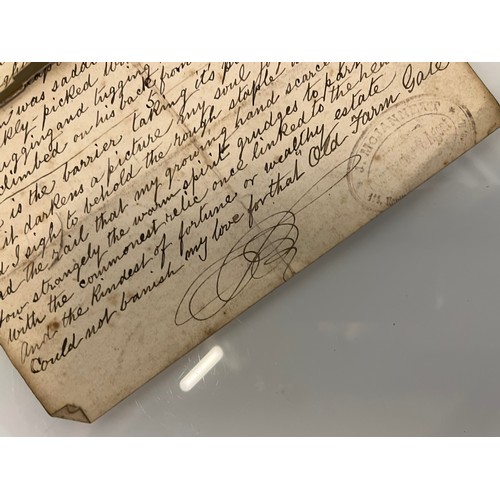 was saddl
kly-picked
ugging and tugging
climbed on his back from
5
is the barrier taking its
it darkens a picture my soul
d I sigh to behold the rough staple
nd the rail that my growing hand scarce
How strangely the warm spirit grudges to part
With the commonest relic once linked to the he
And the kindest of fortune or wealthy estate
Could not banish any love for that Old Farm Gate